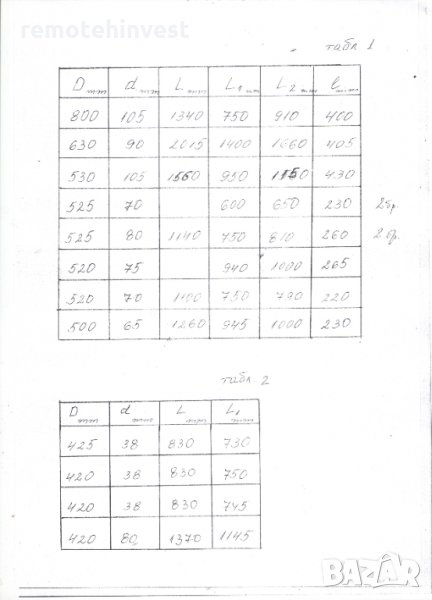 remotehinvest
табл 1
D mm d mm L mm L1 mm L2 mm l mm
800 105 1340 750 910 400
630 90 2015 1400 1660 405
530 105 1560 950 1150 430
525 70 600 650 230 2бр.
525 80 1140 750 810 260 2 бр.
520 75 940 1000 265
520 70 1100 750 790 220
500 65 1260 945 1000 230
табл 2
D mm d mm L mm L1 mm
425 38 830 730
420 38 830 750
420 38 830 745
420 80 1370 1145
BAZAR